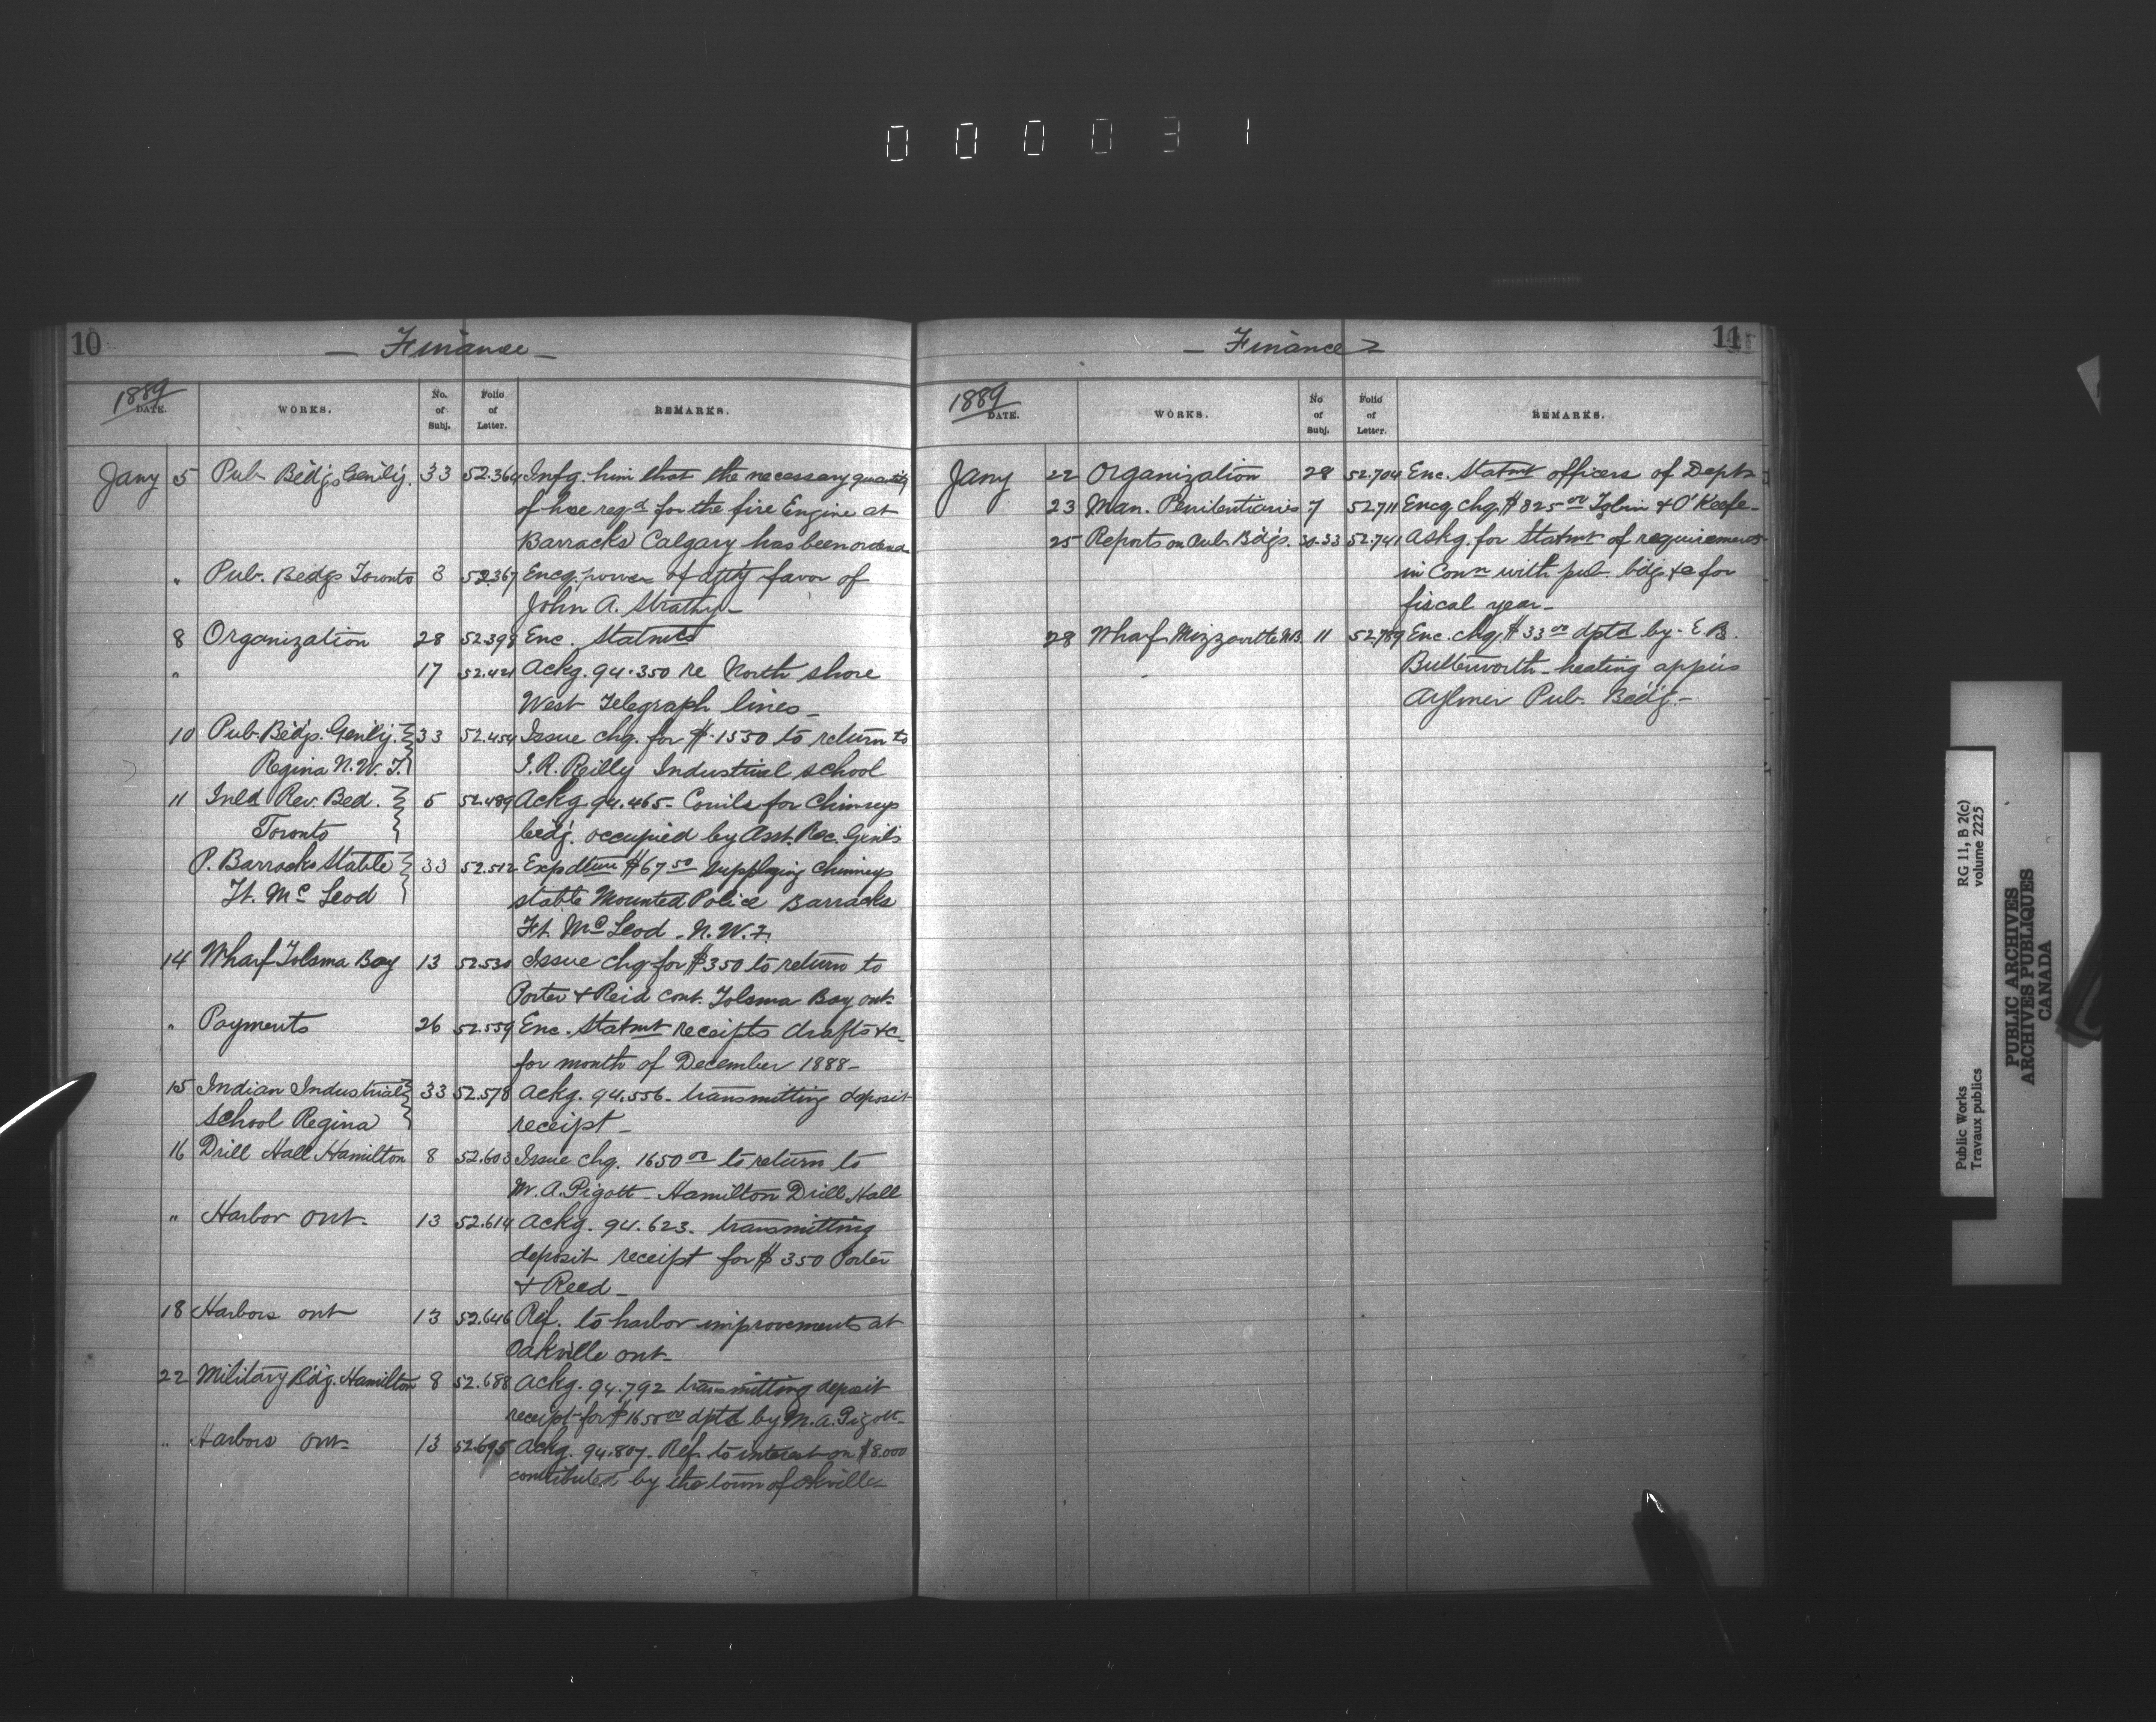 000031
10
— Finance —
1889
DATE.
WORKS.
No. of Subj.
Folio of Letter.
REMARKS.
Jany 5 Pub Bldgs Genlly. 33 52.364 Infg. him that the necessary quantity
of hose reqd for the fire Engine at
Barracks Calgary has been ordered
" Pub. Bedgs Toronto 3 52.367 Encg. power of atty favor of
John A. Strathy —
8 Organization 28 52.398 Enc. Statmts
" 17 52.421 Ackg. 94.350 re North shore
West Telegraph lines —
10 Pub. Bldgs. Genlly. 33 52.454 Issue chq. for $1530 to return to
Regina N.W.T. J. R. Reilly Industrial school
11 Inld Rev. Bed. 5 52.489 Ackg 94.465 - for Chimneys
Toronto bedg. occupied by Asst. Rec. Genls
P. Barracks Stable 33 52.512 Expdture $67 50 supplying Chimneys
Ft. Mc Leod stable Mounted Police Barracks
Ft. Mc Leod - N.W.T.
14 Wharf Tolsma Bay 13 52.530 Issue chq for $350 to return to
Porter & Reid cont. Tolsma Bay ont.
" Payments 26 52.559 Enc. Statmt receipts drafts &c
for month of December 1888 —
15 Indian Industrial 33 52.578 Ackg. 94.556 - transmitting deposit
School Regina receipt —
16 Drill Hall Hamilton 8 52.603 Issue chq. 1650 00 to return to
M. A. Pigott - Hamilton Drill Hall
" Harbor ont. 13 52.614 Ackg. 94.623 - transmitting
deposit receipt for $350 Porter
& Reed —
18 Harbors ont 13 52.646 Ref. to harbor improvements at
Oakville ont —
22 Military Bdg. Hamilton 8 52.688 Ackg. 94.792 transmitting deposit
receipt for $1650 00 dptd by M. A. Pigott —
" Harbors ont 13 52.695 Ackg. 94.807 - Ref. to interest on $8.000
contributed by the town of
11
— Finance —
1889
DATE.
WORKS.
No of Subj.
Folio of Letter.
REMARKS.
Jany 22 Organization 28 52.704 Enc. Statmt officers of Dept
23 Man. Penitentiaries 7 52.711 Encg chq. $825 00 & O'Keefe —
25 Reports on Pub. Bdgs. 30-33 52.741 Askg. for Statmt of requirements
in Conn with pub. bdgs &c for
fiscal year —
28 Wharf N.B. 11 52.789 Enc. chq. $33 00 dptd by E. B.
Butterworth - heating appts
Aylmer Pub. Bedg. —
Public Works
Travaux publics
RG 11, B 2(c)
volume 2225
PUBLIC ARCHIVES
ARCHIVES PUBLIQUES
CANADA